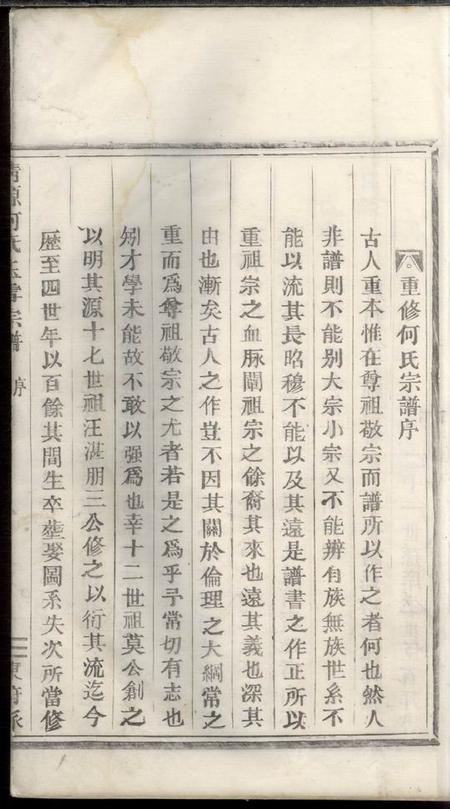 重修何氏宗譜序
古人重本惟在尊祖敬宗而譜所以作之者何也然人
非譜則不能別大宗小宗又不能辨有族無族世系不
能以流其長昭穆不能以及其遠是譜書之作正所以
重祖宗之血脉闡祖宗之餘裔其來也遠其義也深其
由也漸矣古人之作豈不因其關於倫理之大綱常之
重而爲尊祖敬宗之尤者若是之爲乎予常切有志也
矧才學未能故不敢以强爲也幸十二世祖莫公創之
以明其源十七世祖汪湛朋三公修之以衍其流迄今
歷至四世年以百餘其間生卒塟娶圖系失次所當修
何氏 宗譜 序
東府派